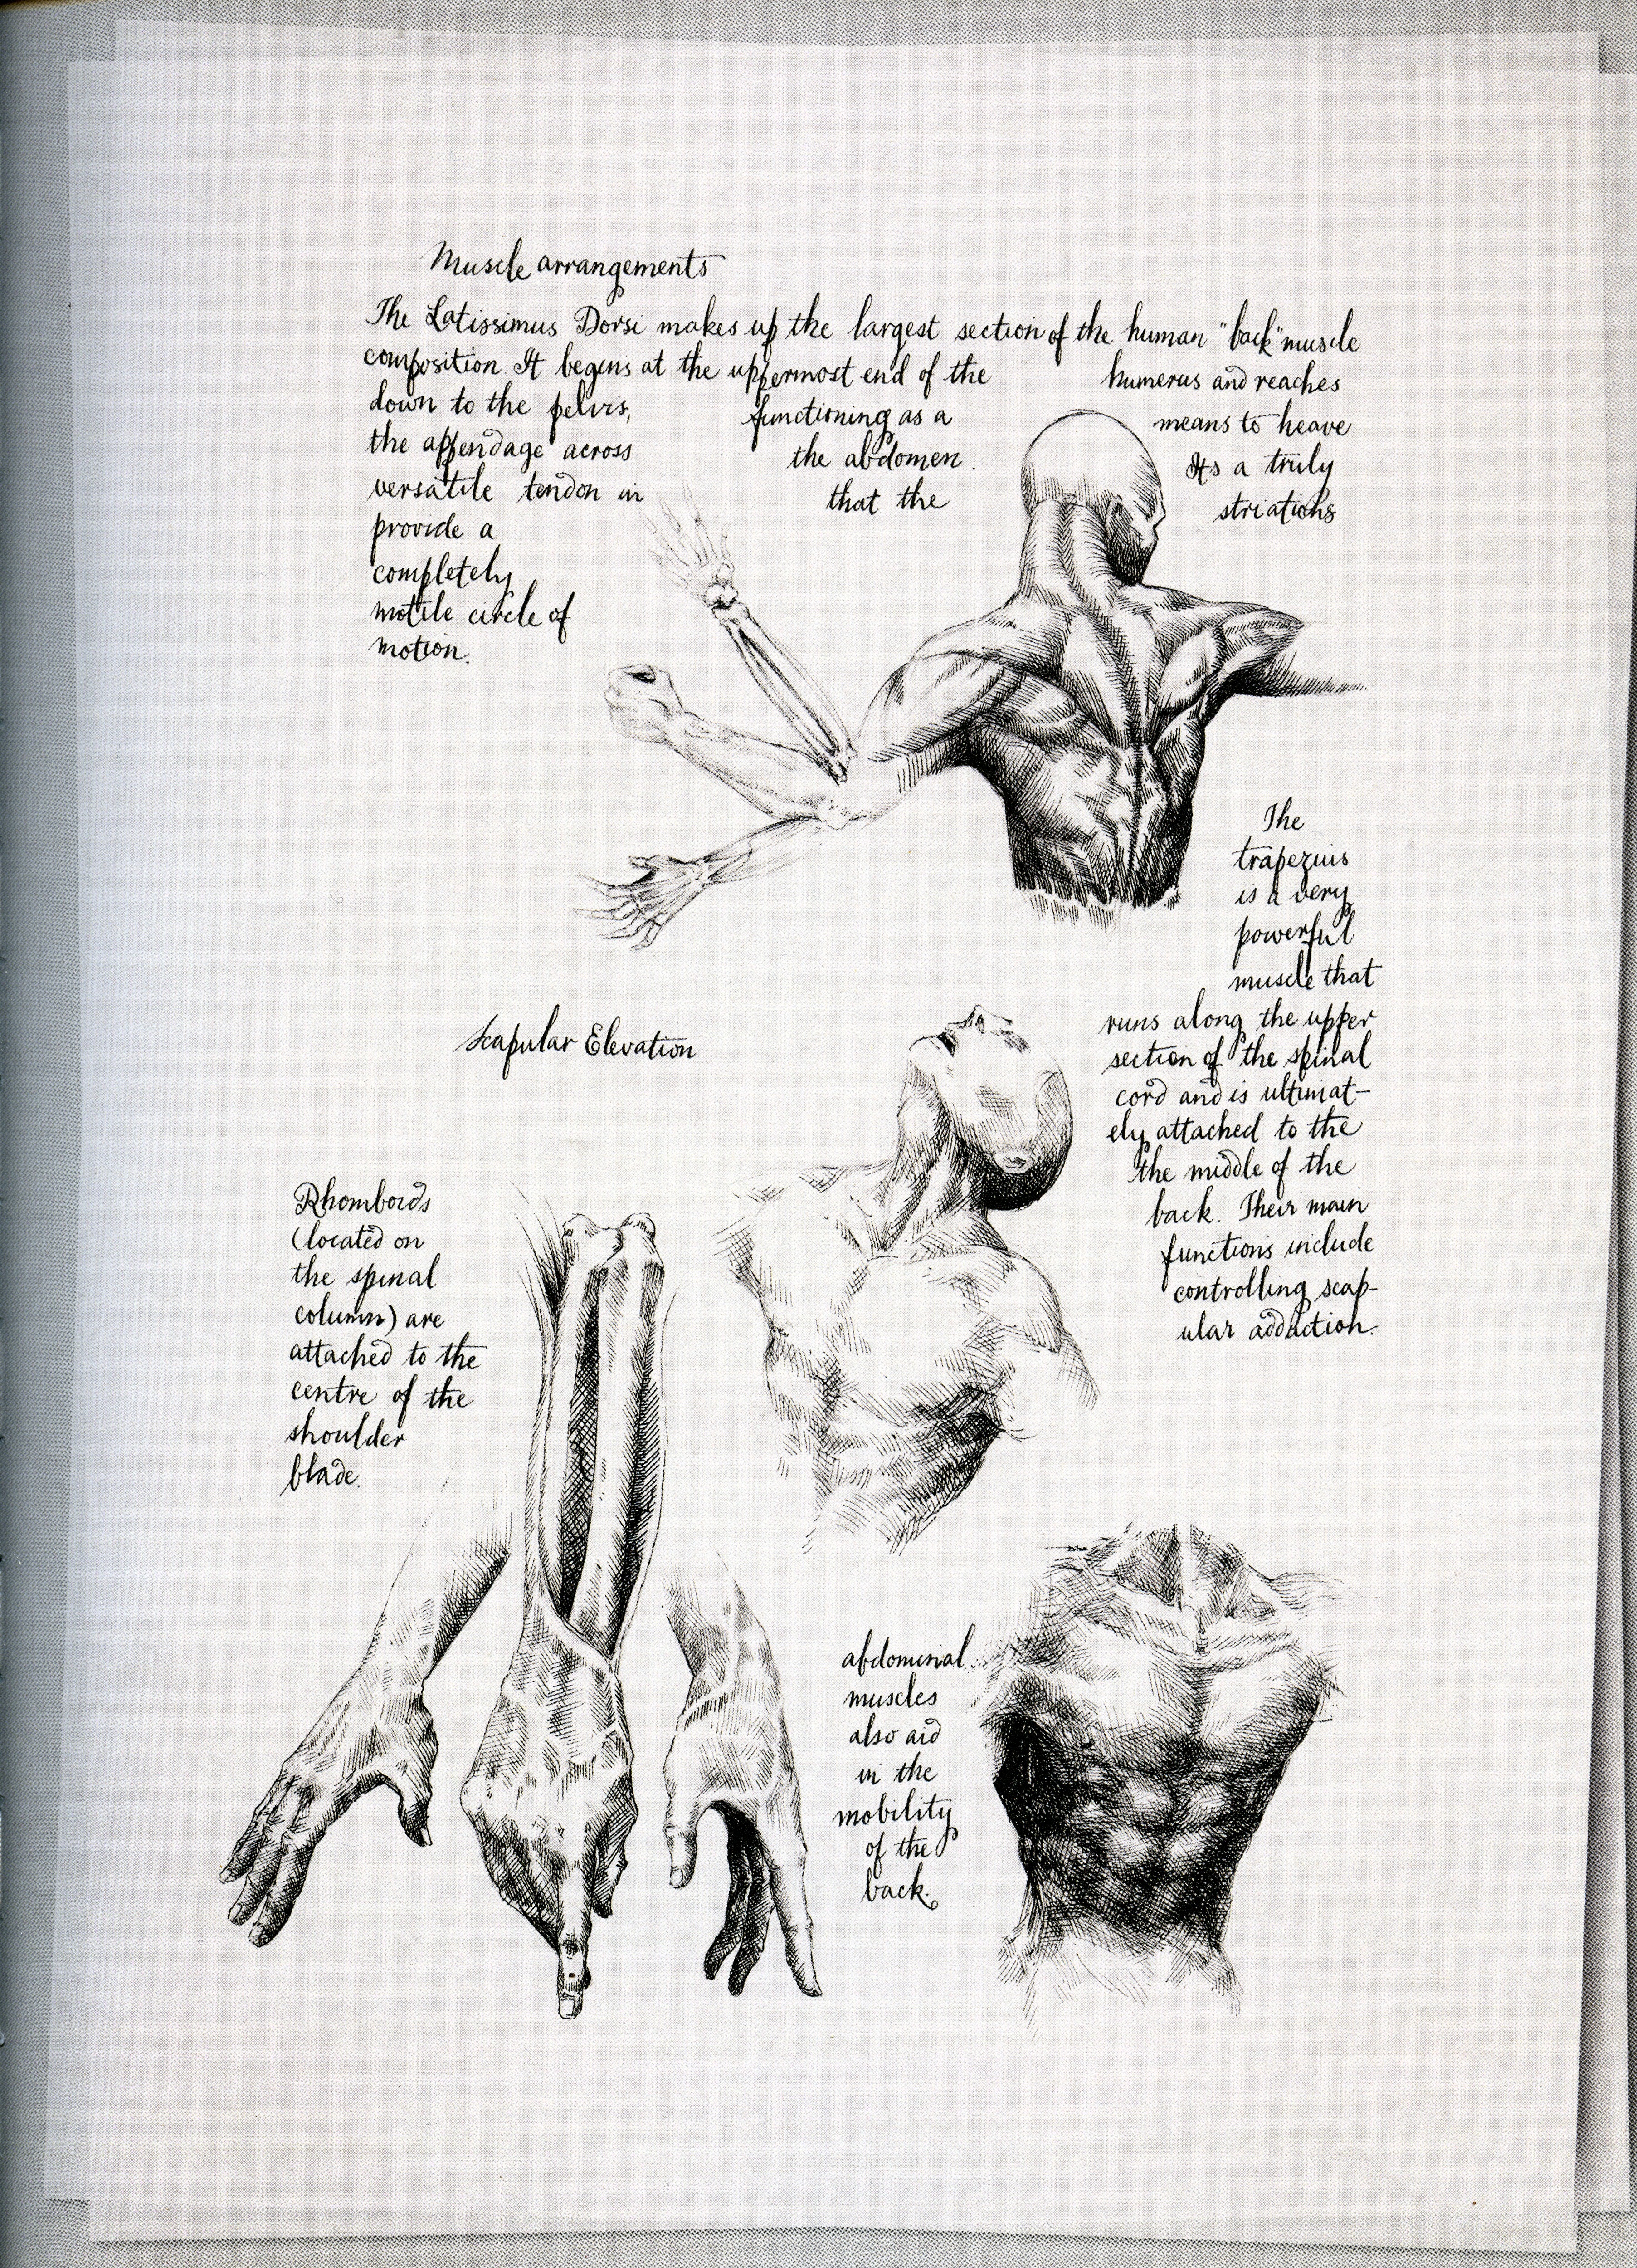 Muscle arrangements
The Latissimus Dorsi makes up the largest section of the human "back" muscle
composition. It begins at the uppermost end of the humerus and reaches
down to the pelvis, functioning as a means to heave
the appendage across the abdomen. Its a truly
versatile tendon in that the striations
provide a
completely
motile circle of
motion.
The
trapezius
is a very
powerful
muscle that
runs along the upper
section of the spinal
cord and is ultimat-
ely attached to the
the middle of the
back. Their main
functions include
controlling scap-
ular adduction.
Scapular Elevation
Rhomboids
(located on
the spinal
column) are
attached to the
centre of the
shoulder
blade.
abdominal
muscles
also aid
in the
mobility
of the
back.